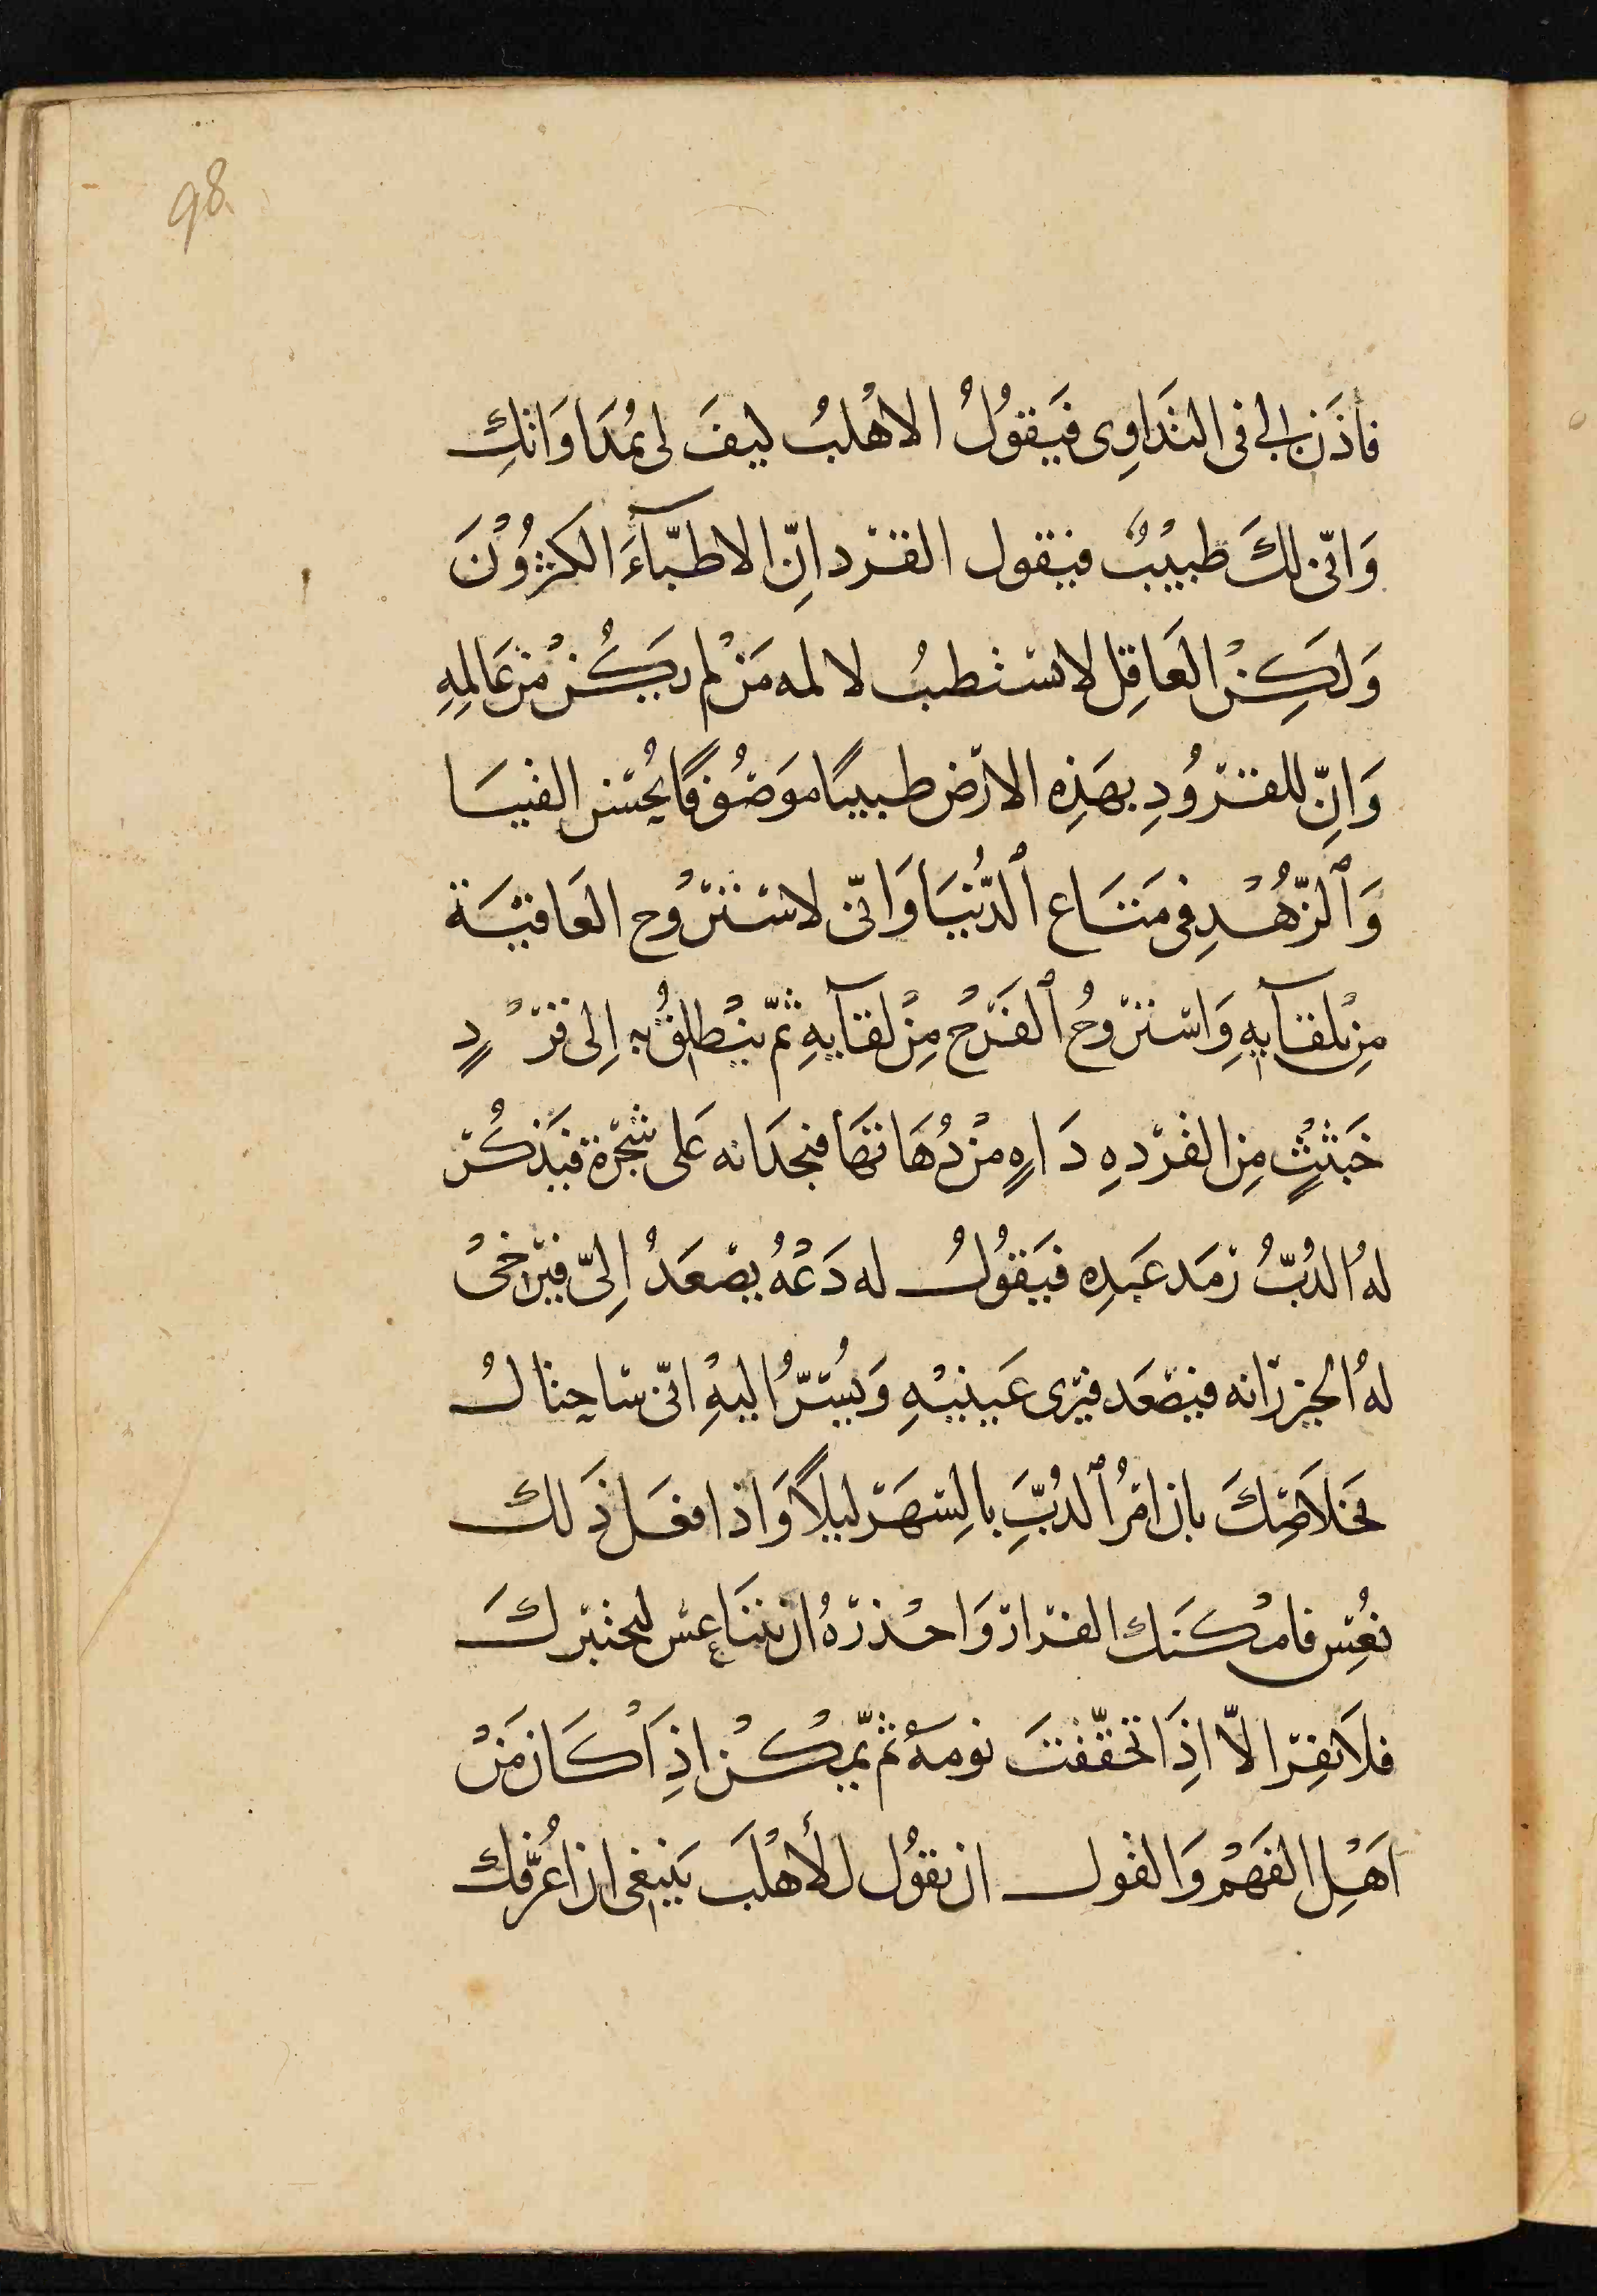 98
فأذن لي في التداوي فَيَقوُلُ الاهْلبُ ليفَ لى بمُدَاوَاتكِ
وَانّى لكَ طبيْبٌ فيقول القرد انّ الاطبّآءَ الكثرُوْنَ
وَلكِنْ العَاقِل لاستطبُ لالمه مَنْ لم يكُنْ منْ عَالمِهِ
وَانّ للقرُوْدِ بهَذِه الارْض طبيبًا موَصُوْفًا يُحْسن الفيَا
وَٱلزّهُدِ فى مَتَاع ٱلدُّنيَا وَانّى لاستَرْوُح العَافيَة
مِنْ تلقآيهِ وَاسْتروحُ ٱلفَرَحْ مِنْ لقآيهِ ثمّ ينْطلقُ به اِلى قرْدٍ
خَبَثثٍ مِن القرْدهِ دَارهٍ مْن دُهَاتهَا فيجدَانه عَلى شجَرة فيَذكُرّ
لهُ الدُبُّ رَمَد عَبدِه فيَقوُلُ له دَعْهُ يصْعَدُ اِلىّ فيَرْخىْ
لهُ الخيزرَانه فيصْعَد فيرَى عَينيْهِ وَيُسّرُ اليْهِ انّى ساحتالُ
فى خلاَصِكَ بان امُرُ ٱلدُبَّ بالِسّهَرْ ليلاً وَاذا فعَل ذَلك
نعُسِ فامْكنَك الفرار وَاحْذرْهُ ان يتنَاعسْ ليختبركَ
فلاَ تفِرّ الاّ اذِا تحَقّقتَ نومهُ ثمّ يمْكُنْ اذِا كَان منْ
اهْلِ الفهَمْ وَالقول ان يقوُل للأهْلَبَ يَنبغى ان اعُرّفك